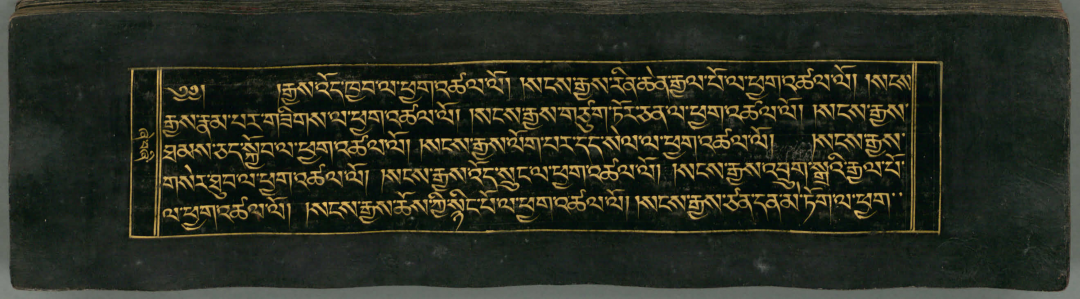 ༄༅། །རྒྱས་འོད་ཁྱབ་ལ་ཕྱག་འཚལ་ལོ། །སངས་རྒྱས་རིན་ཆེན་རྒྱལ་པོ་ལ་ཕྱག་འཚལ་ལོ། །སངས
རྒྱས་རྣམ་པར་གཟིགས་ལ་ཕྱག་འཚལ་ལོ། །སངས་རྒྱས་གཙུག་ཏོར་ཅན་ལ་ཕྱག་འཚལ་ལོ། །སངས་རྒྱས་
ཐམས་ཅད་སྐྱོབ་ལ་ཕྱག་འཚལ་ལོ། །སངས་རྒྱས་ལོག་པར་དད་སེལ་ལ་ཕྱག་འཚལ་ལོ། །སངས་རྒྱས་
གསེར་ཐུབ་ལ་ཕྱག་འཚལ་ལོ། །སངས་རྒྱས་འོད་སྲུང་ལ་ཕྱག་འཚལ་ལོ། །སངས་རྒྱས་འབྲུག་སྒྲའི་རྒྱལ་པོ་
ལ་ཕྱག་འཚལ་ལོ། །སངས་རྒྱས་ཆོས་ཀྱི་སྙིང་པོ་ལ་ཕྱག་འཚལ་ལོ། །སངས་རྒྱས་ཙན་དནམ་ཏོག་ལ་ཕྱག་